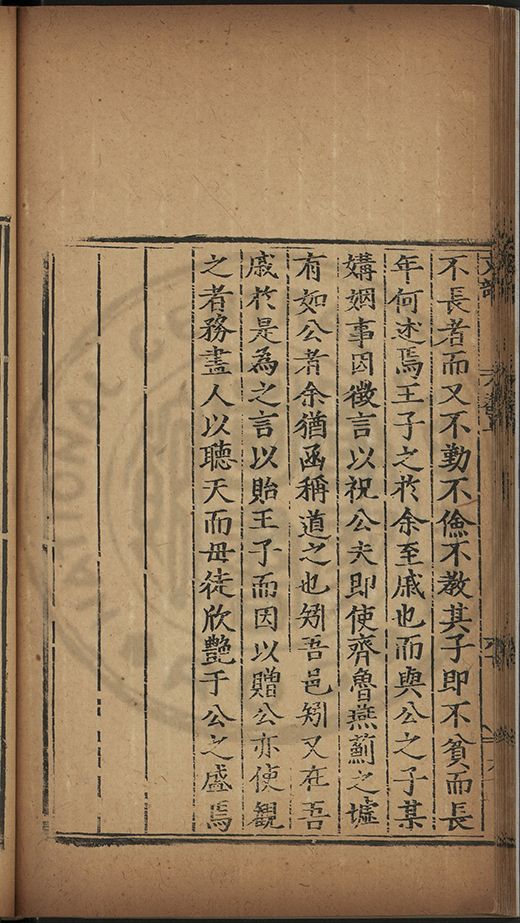 不長者而又不勤不儉不教其子即不貧而長
年何述焉王子之於余至戚也而與公之子某
媾姻事因徵言以祝公夫即使齊魯燕薊之墟
有如公者余猶亟稱道之也矧吾邑矧又在吾
戚於是為之言以貽王子而因以贈公亦使観
之者務盡人以聽天而毋徒欣艷于公之盛焉